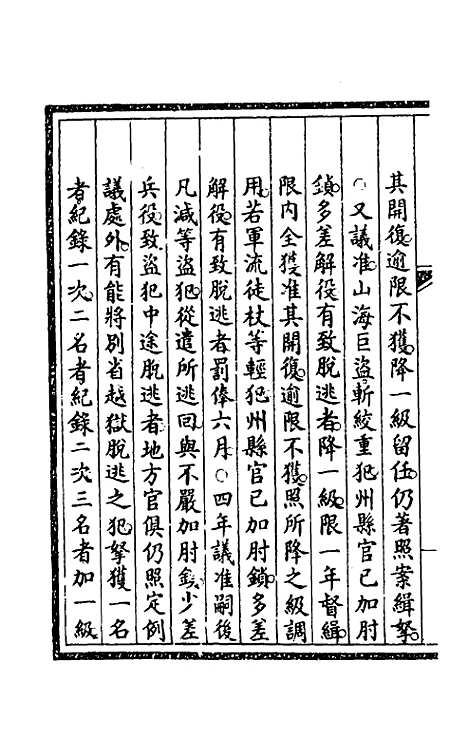 其開復逾限不獲降一級留任仍著照案緝拏
○又議准山海巨盜斬絞重犯州縣官已加肘
鎖多差解役有致脫逃者降一級限一年督緝
限内全獲准其開復逾限不獲照所降之級調
用若軍流徒杖等輕犯州縣官已加肘鎖多差
解役有致脫逃者罰俸六月○四年議准嗣後
凡減等盜犯從遣所逃回與不嚴加肘鎖少差
兵役致盜犯中途脫逃者地方官俱仍照定例
議處外有能將別省越獄脫逃之犯拏獲一名
者紀錄一次二名者紀錄二次三名者加一級